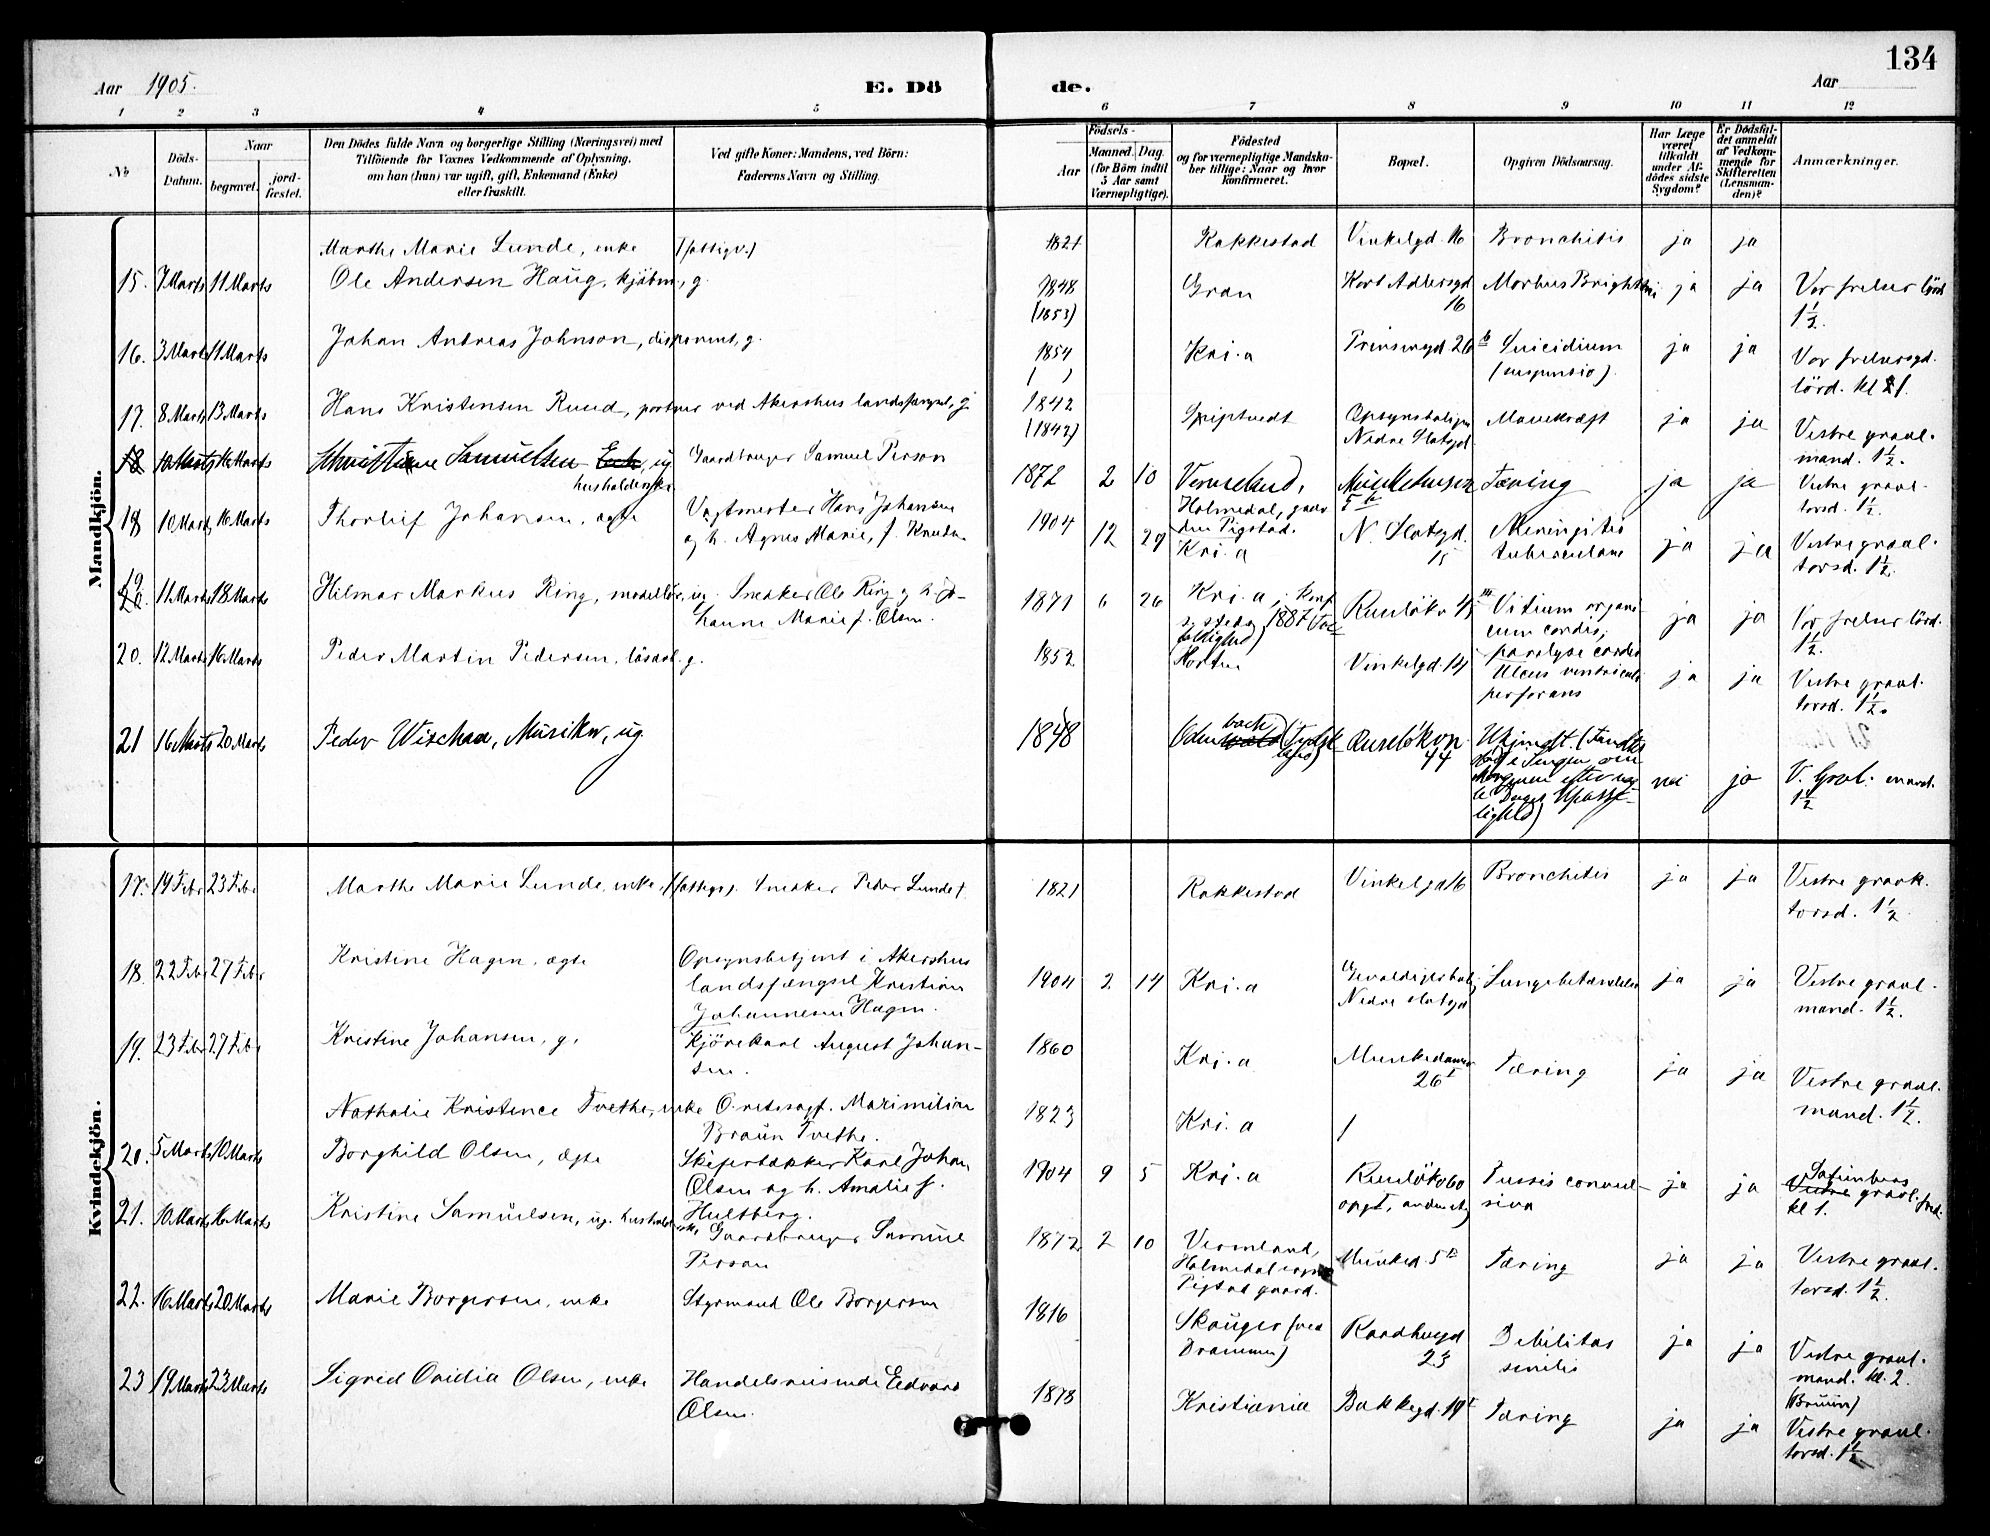 134
Aar 1905. E. Dö de. Aar
1 2 3 4 5 6 7 8 9 10 11 12
No
Döds-Datum.
Naar
begravet.
jord-fæstet.
Den Dödes fulde Navn og borgerlige Stilling (Næringsvei) med
Tilföiende for Voxnes Vedkommende af Oplysning,
om han (hun) var ugift, gift, Enkemand (Enke)
eller fraskilt.
Ved gifte Koner: Mandens, ved Börn:
Faderens Navn og Stilling.
Födsels-
Aar
Maaned. Dag.
(for Börn indtil
5 Aar samt
Værnepligtige).
Födested
og for værnepligtige Mandska-
ber tillige: Naar og hvor
konfirmeret.
Bopæl.
Opgiven Dödsaarsag.
Har Læge
været
tilkaldt
under Af-
dödes sidste
Sygdom?
Er Dödsfal-
det anmeldt
af Vedkom-
mende for
Skifteretten
(Lensman-
den)?
Anmærkninger.
Mandkjön.
Marthe Marie Lunde, enke (fattigv.) 1821 Rakkestad Vinkelgd. 16 Bronchitis ja ja
15. 7 Marts 11 Marts Ole Andersen Haug, kjöbm., g. 1848 (1853) Gran Kort Adlersgd 16 Morbus Brightii ja ja Vor frelser lörd 1 1/2.
16. 3 Marts 11 Marts Johan Andreas Johnson, disponent, g. 1854 ( ) Kri.a Prinsensgd 26 b Suicidium (suspensio). ja ja Vor frelsersgd. lörd. kl 1.
17. 8 Marts 13 Marts Hans Kristensen Ruud, portner ved Akershus landsfængsel, g 1842 (1842) Spydeberg Opsynsboligen Nedre Slotsgd Mavekræft ja ja Vestre gravl. mand. 1 1/2.
18 10 Marts 16 Marts Christine Samuelsen Enke, ug husholderske Gaardbruger Samuel Person 1872 2 10 Vermeland, Holmedal, gaarden Pigstad. Munkedamsv 5 b Tæring ja ja Vestre gravl. torsd. 1 1/2.
18 10 Marts 16 Marts Thorleif Johansen, ægte Vagtmester Hans Johansen og h. Agnes Marie, f. Knuds. 1904 12 29 Kri.a N. Slotsgd. 15 Meningitis tuberculane ja ja Vestre gravl. torsd. 1 1/2.
19. 11 Marts 18 Marts Hilmar Markus Ring, modellör, ug. Snedker Ole Ring og h. Jo-
hanne Marie f. Olsen. 1871 6 26 Kri.a, konf s. steds 1887 (Trefoldighed) Ruselökv 45 Vitium organicum cordis, paralyse cordis ja ja Vor frelser lörd. 1 1/2.
20. 12 Marts 16 Marts Peder Martin Pedersen, lösarb. g. 1852 Horten Vinkelgd. 14 Ulcus ventriculi perforans ja ja Vestre gravl. torsd. 1 1/2.
21 16 Marts 20 Marts Peder Wischan, Musiker, ug 1848 Odenbach wald (Tydskland) Ruselökvn 44 Ukjendt. (Fandtes död i Sengen om Morgenen efter nogle Dages Upasselighed) nei ja V. Gravl. mand. 1 1/2
Kvindekjön.
17. 19 Febr 23 Febr Marthe Marie Lunde, enke, (fattigv.). Snedker Peder Lunde f. 1821 Rakkestad Vinkelgd 16 Bronchitis ja ja Vestre gravl. torsd. 1 1/2.
18. 22 Febr 27 Febr Kristine Hagen, ægte Opsynsbetjent i Akershus
landsfængsel Kristian
Johannesen Hagen. 1904 2 14 Kri.a Gevaldigerbol, Nedre slotsgd Lungebetændelse ja ja Vestre gravl. mand. 1 1/2.
19. 23 Febr 27 Febr Kristine Johansen, g. Kjörekarl August Johan-
sen. 1860 Kri.a Munkedamsv 26 I Tæring ja ja Vestre gravl. mand. 1 1/2.
Nathalie Kristence Tvethe, enke O.retssagf. Maximilian
Braün Tvethe. 1823 Kri.a /
20. 5 Marts 10 Marts Borghild Olsen, ægte Skifertækker Karl Johan
Olsen og h. Amalie f.
Hultberg. 1904 9 5 Kri.a Ruselökv 60 opg I, anden etg Tussis convul-
siva ja ja Vestre gravl. fred. kl 1.
21. 10 Marts 16 Marts Kristine Samuelsen, ug. husholderske, Gaardbruger Samuel
Person 1872 2 10 Vermland, Holmedal sogn Pigstad gaard. Munked. 5 b Tæring ja ja Vestre gravl. torsd. 1 1/2.
22. 16 Marts 20 Marts Marie Borgersen, enke Styrmand Ole Borgersen 1816 Skouger (ved Drammen) Raadhusgd 23 Debilitas senilis ja ja Vestre gravl. mand. kl. 2. (Bruun)
23 19 Marts 23 Marts Sigrid Ovidia Olsen, enke Handelsreisende Edvard
Olsen. 1878 Kristiania Bakkegd. 19 I Tæring ja ja Vestre gravl. torsd. 1 1/2